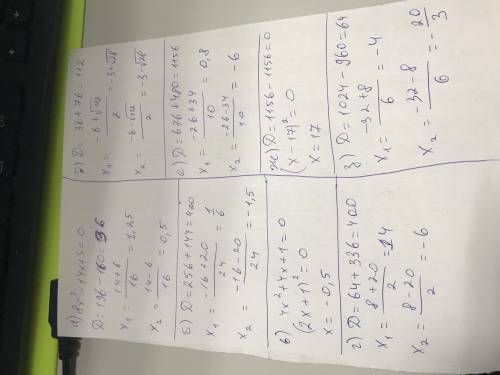 а) 8x² - 14x + 5 = 0
D = 196 - 160 = 36
x₁ = (14+6)/16 = 1,25
x₂ = (14-6)/16 = 0,5
б) D = 256 + 144 = 400
x₁ = (-16+20)/24 = 1/6
x₂ = (-16-20)/24 = -1,5
в) 4x² + 4x + 1 = 0
(2x+1)² = 0
x = -0,5
г) D = 64 + 336 = 400
x₁ = (8+20)/2 = 14
x₂ = (8-20)/2 = -6
д) D = 36 + 76 = 112
x₁ = (-6+√112)/2 = -3+√28
x₂ = (-6-√112)/2 = -3-√28
е) D = 676 + 480 = 1156
x₁ = (-26+34)/10 = 0,8
x₂ = (-26-34)/10 = -6
ж) D = 1156 - 1156 = 0
(x-17)² = 0
x = 17
з) D = 1024 - 960 = 64
x₁ = (-32+8)/6 = -4
x₂ = (-32-8)/6 = -20/3